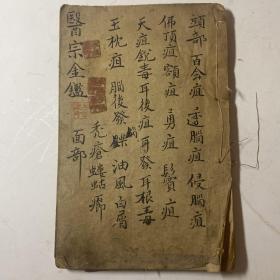 頭部 百会疽 透腦疽 侵腦疽
佛頂疽 額疽 勇疽 鬂疽
天疽銳毒 耳後疽 耳發 耳根毒
玉枕疽 腦後發 油風 白屑
禿瘡 螻蛄癤
面部
醫宗金鑑